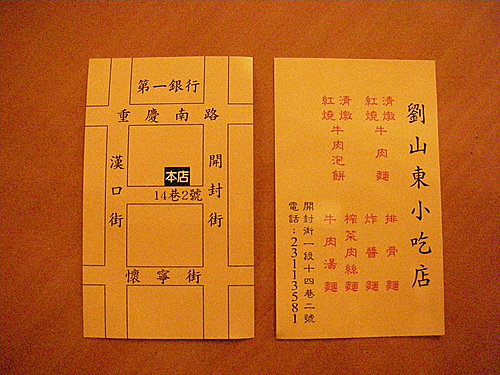 第一銀行
重慶南路
漢口街
開封街
本店
14巷2號
懷寧街
劉山東小吃店
清燉
紅燒
牛肉麵
清燉
紅燒
牛肉泡餅
排骨麵
炸醬麵
榨菜肉絲麵
牛肉湯麵
開封街一段十四巷二號
電話:23113581